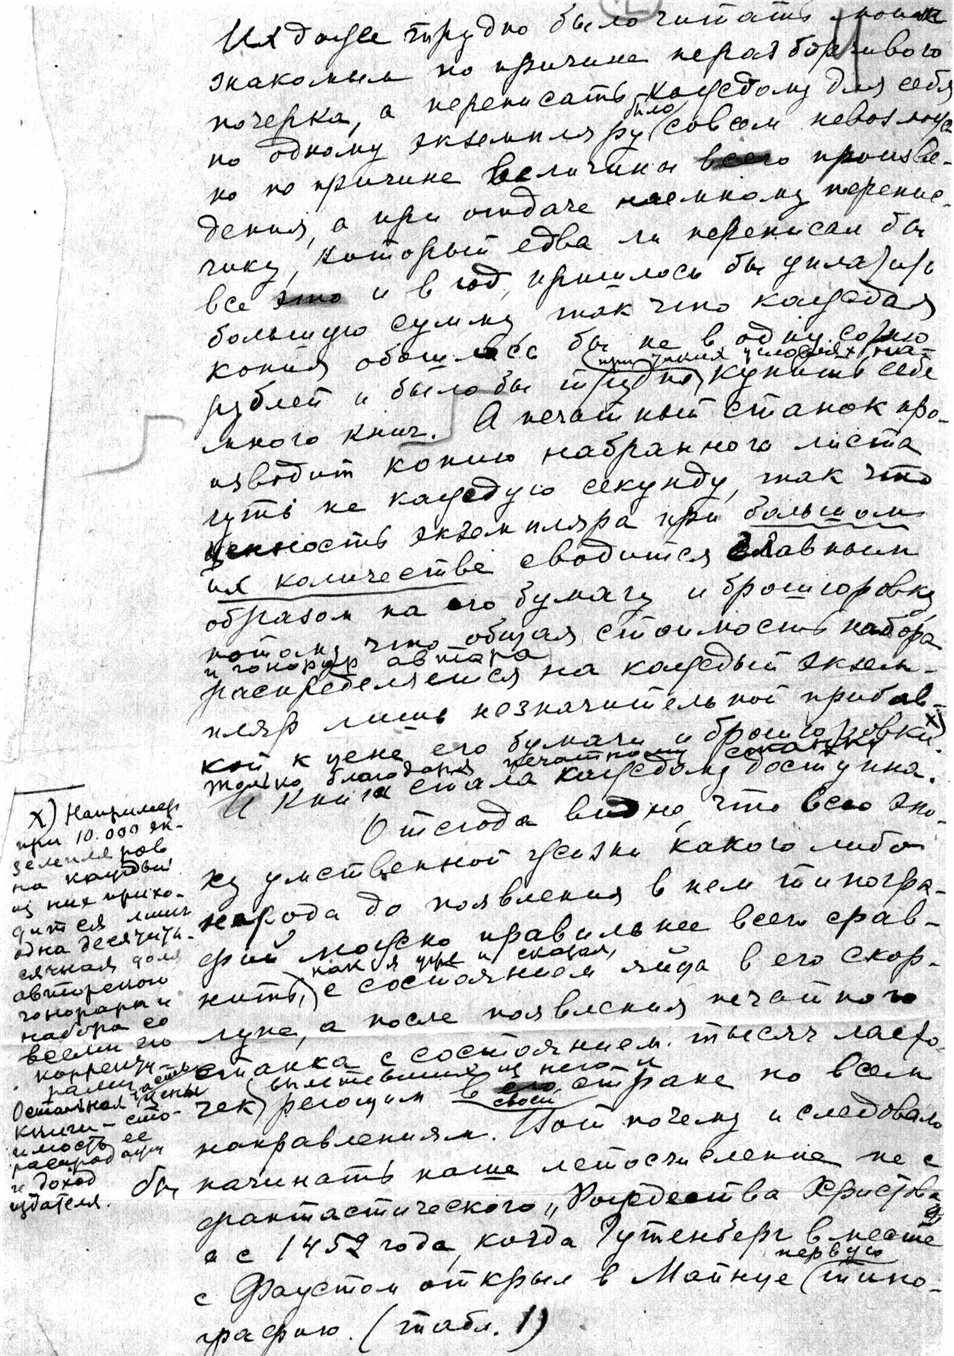 Их даже трудно было читать моим
знакомым по причине неразборчивого
почерка, а переписать каждому для себя
по одному экземпляру было совсем невозмож-
но по причине величины всего произве-
дения, а при отдаче наемному перепис-
чику, который едва ли переписал бы
все это и в год, пришлось бы уплатить
большую сумму, так что каждая
копия обошлась бы не в одну сотню
рублей и было бы трудно при таких условиях купить себе
много книг. А печатный станок про-
изводит копию набранного листа
чуть не каждую секунду, так что
ценность экземпляра при большом
их количестве сводится главным
образом на его бумагу и брошюровку
потому что общая стоимость набора
и гонорар автора
распределяется на каждый экзем-
пляр лишь незначительной прибав-
кой к цене его бумаги и брошюровки. х)
Только благодаря печатному станку
и книга стала каждому доступна.
Отсюда видно, что всю эпо-
ху умственной жизни какого либо
народа до появления в нем типогра-
фий можно правильнее всего срав-
нить, как я уже и сказал,
с состоянием яйца в его скор-
лупе, а после появления печатного
станка с состоянием тысяч ласто-
чек, вылетевших из него и
реющих в его своей стране по всем
направлениям. Вот почему и следовало
бы начинать наше летосчисление не с
фантастического „Рождества Христова"
а с 1452 года, когда Гутенберг вместе
с Фаустом открыл в Майнце первую типо-
графию. (табл. 1)
х) Например
при 10.000 эк-
земпляров
на каждый
из них прихо-
дится лишь
одна десятиты-
сячная доля
авторского
гонорара и
набора со
всеми его
корректу-
рами.
Остальная часть цены
книги – сто-
имость ее
распродажи
и доход
издателя.